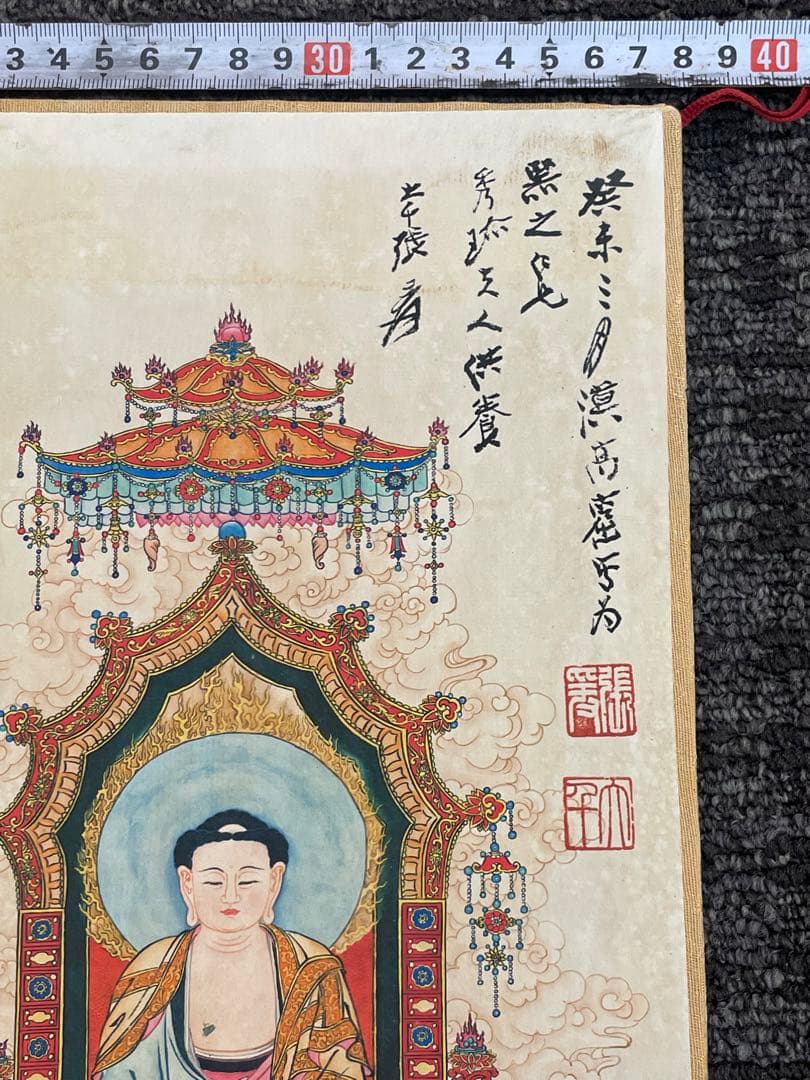 3 4 5 6 7 8 9 30 1 2 3 4 5 6 7 8 9 40
癸未三月漠高窟写为
之仁兄
秀夫人供養
大千張爰
張爰
大千